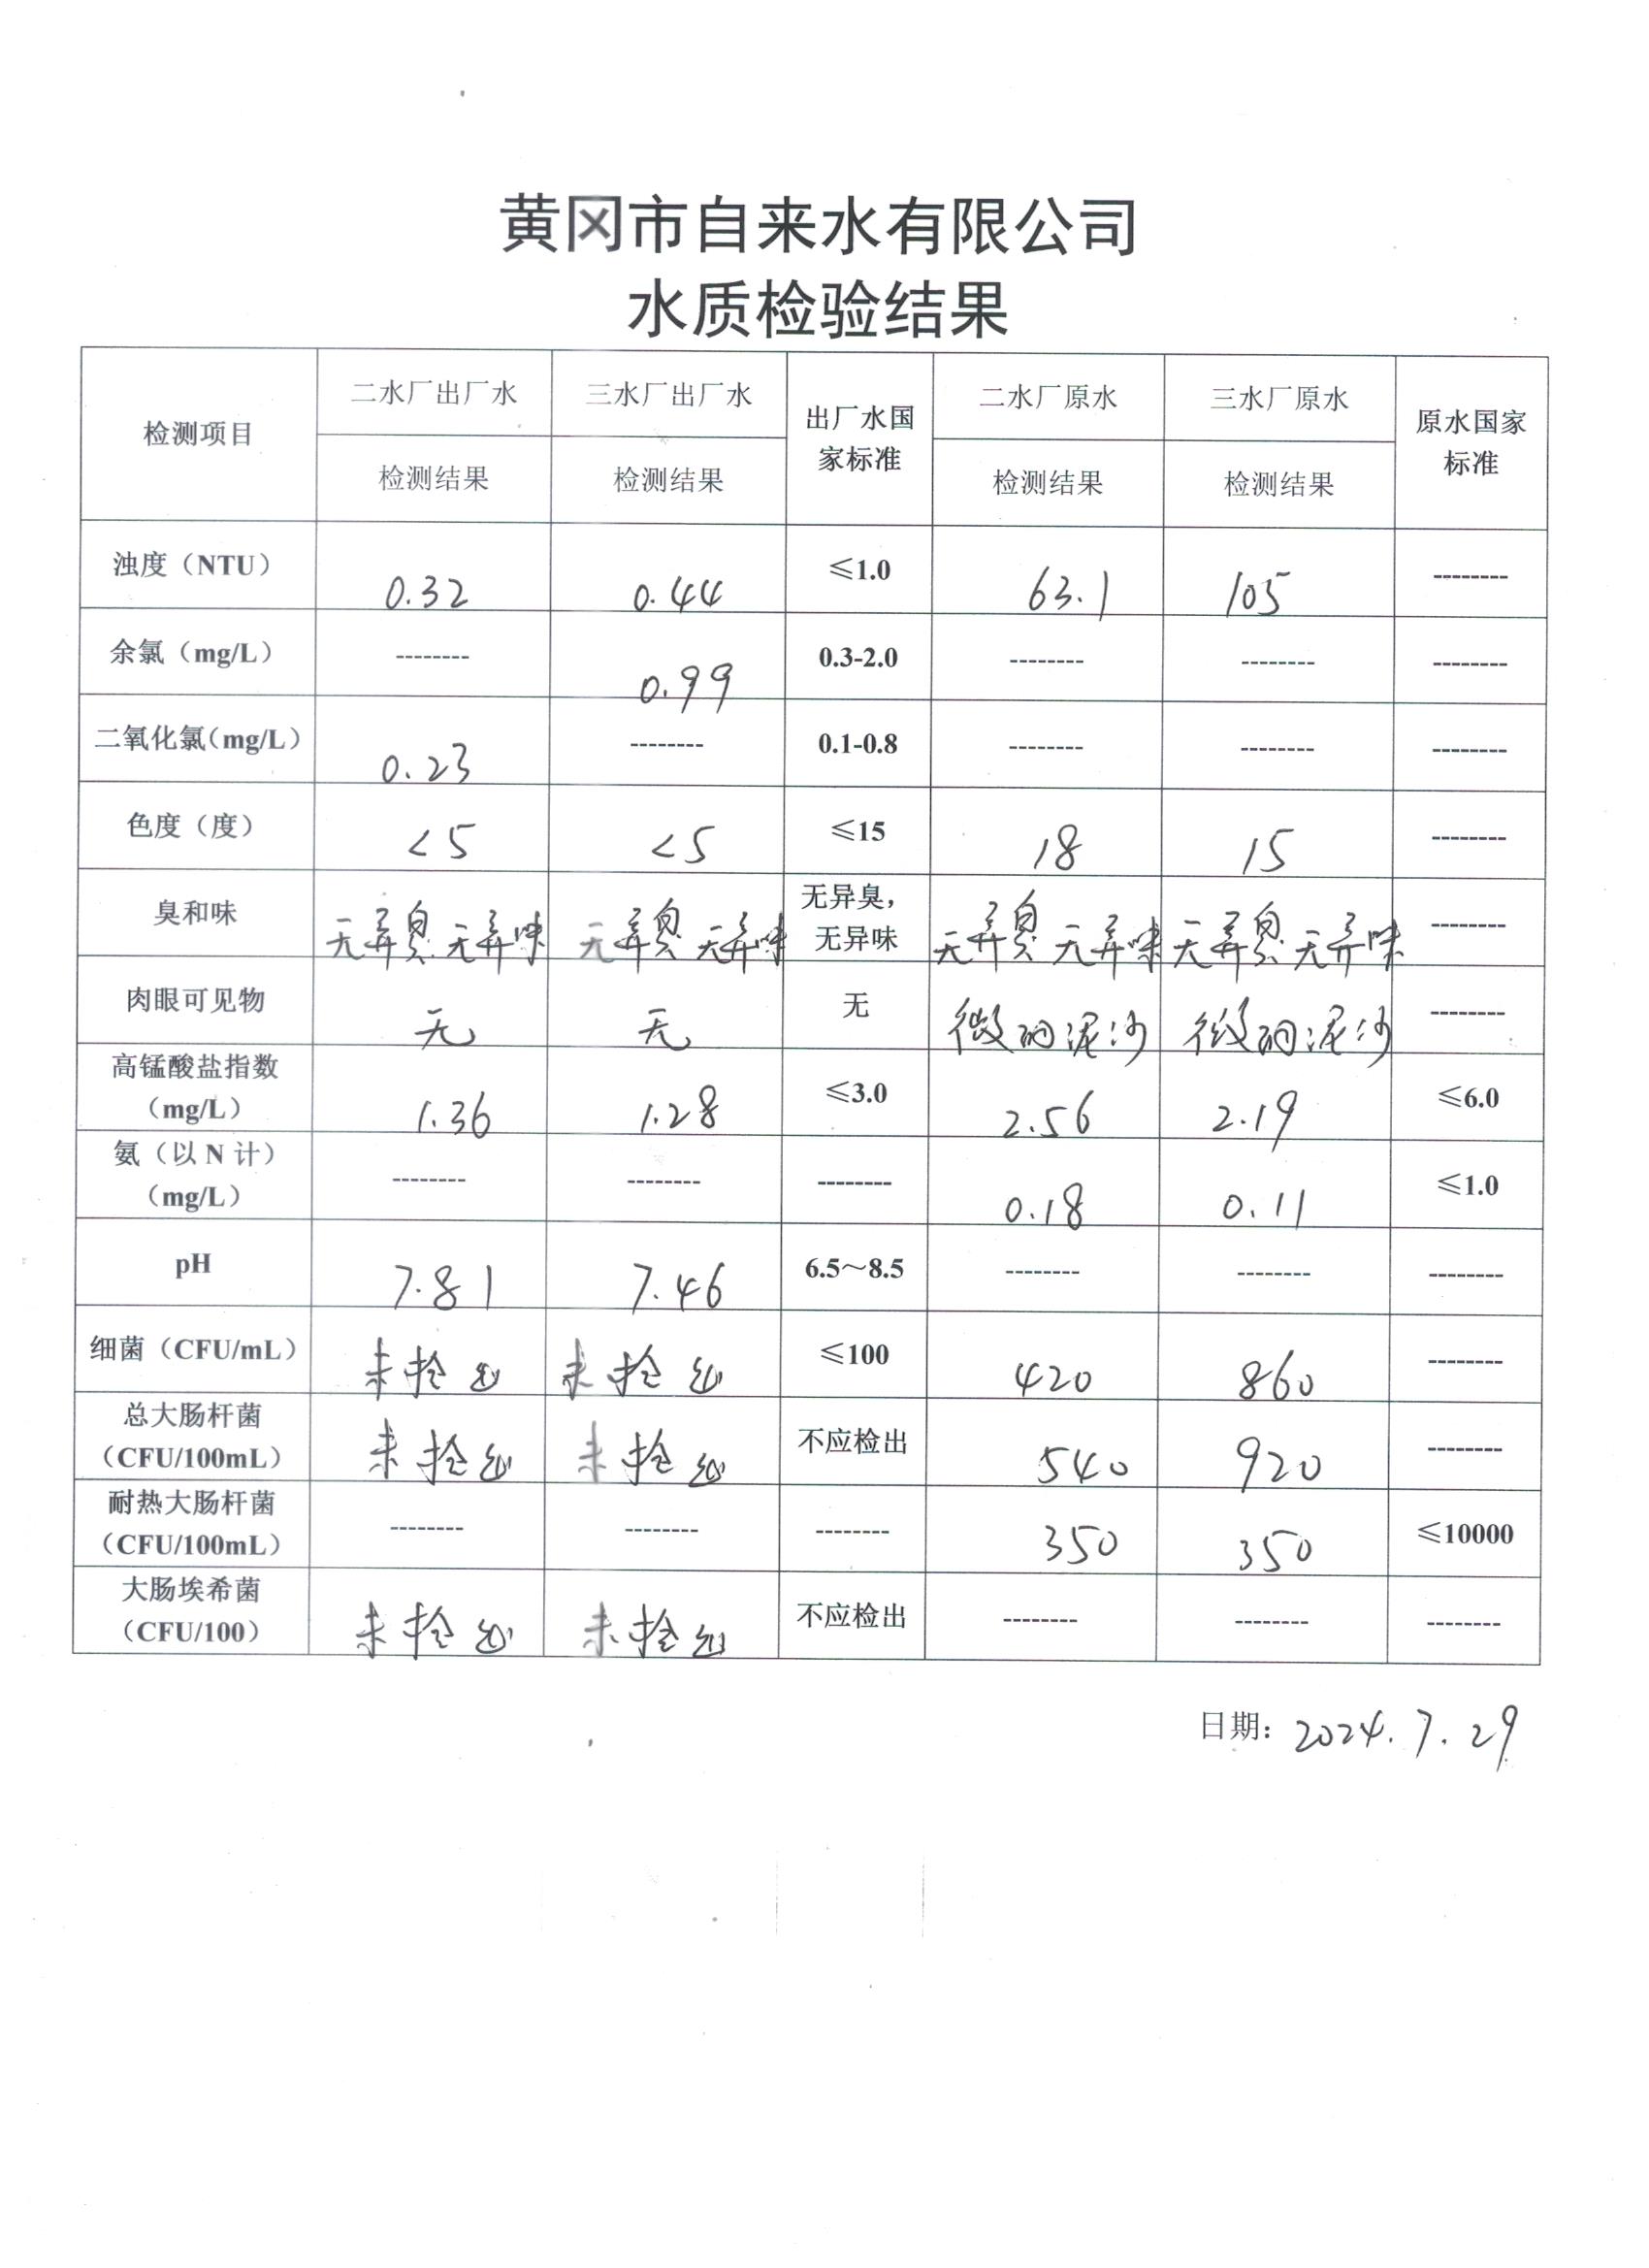 黄冈市自来水有限公司
水质检验结果
检测项目 二水厂出厂水 三水厂出厂水 出厂水国家标准 二水厂原水 三水厂原水 原水国家标准
检测结果 检测结果 检测结果 检测结果
浊度（NTU） 0.32 0.44 ≤1.0 63.1 105 --------
余氯（mg/L） -------- 0.99 0.3-2.0 -------- -------- --------
二氧化氯（mg/L） 0.23 -------- 0.1-0.8 -------- -------- --------
色度（度） <5 <5 ≤15 18 15 --------
臭和味 无异臭.无异味 无异臭.无异味 无异臭，无异味 无异臭.无异味 无异臭.无异味 --------
肉眼可见物 无 无 无 微细泥沙 微细泥沙 --------
高锰酸盐指数（mg/L） 1.36 1.28 ≤3.0 2.56 2.19 ≤6.0
氨（以 N 计）（mg/L） -------- -------- -------- 0.18 0.11 ≤1.0
pH 7.81 7.46 6.5～8.5 -------- -------- --------
细菌（CFU/mL） 未检出 未检出 ≤100 420 860 --------
总大肠杆菌（CFU/100mL） 未检出 未检出 不应检出 540 920 --------
耐热大肠杆菌（CFU/100mL） -------- -------- -------- 350 350 ≤10000
大肠埃希菌（CFU/100） 未检出 未检出 不应检出 -------- -------- --------
日期：2024.7.29